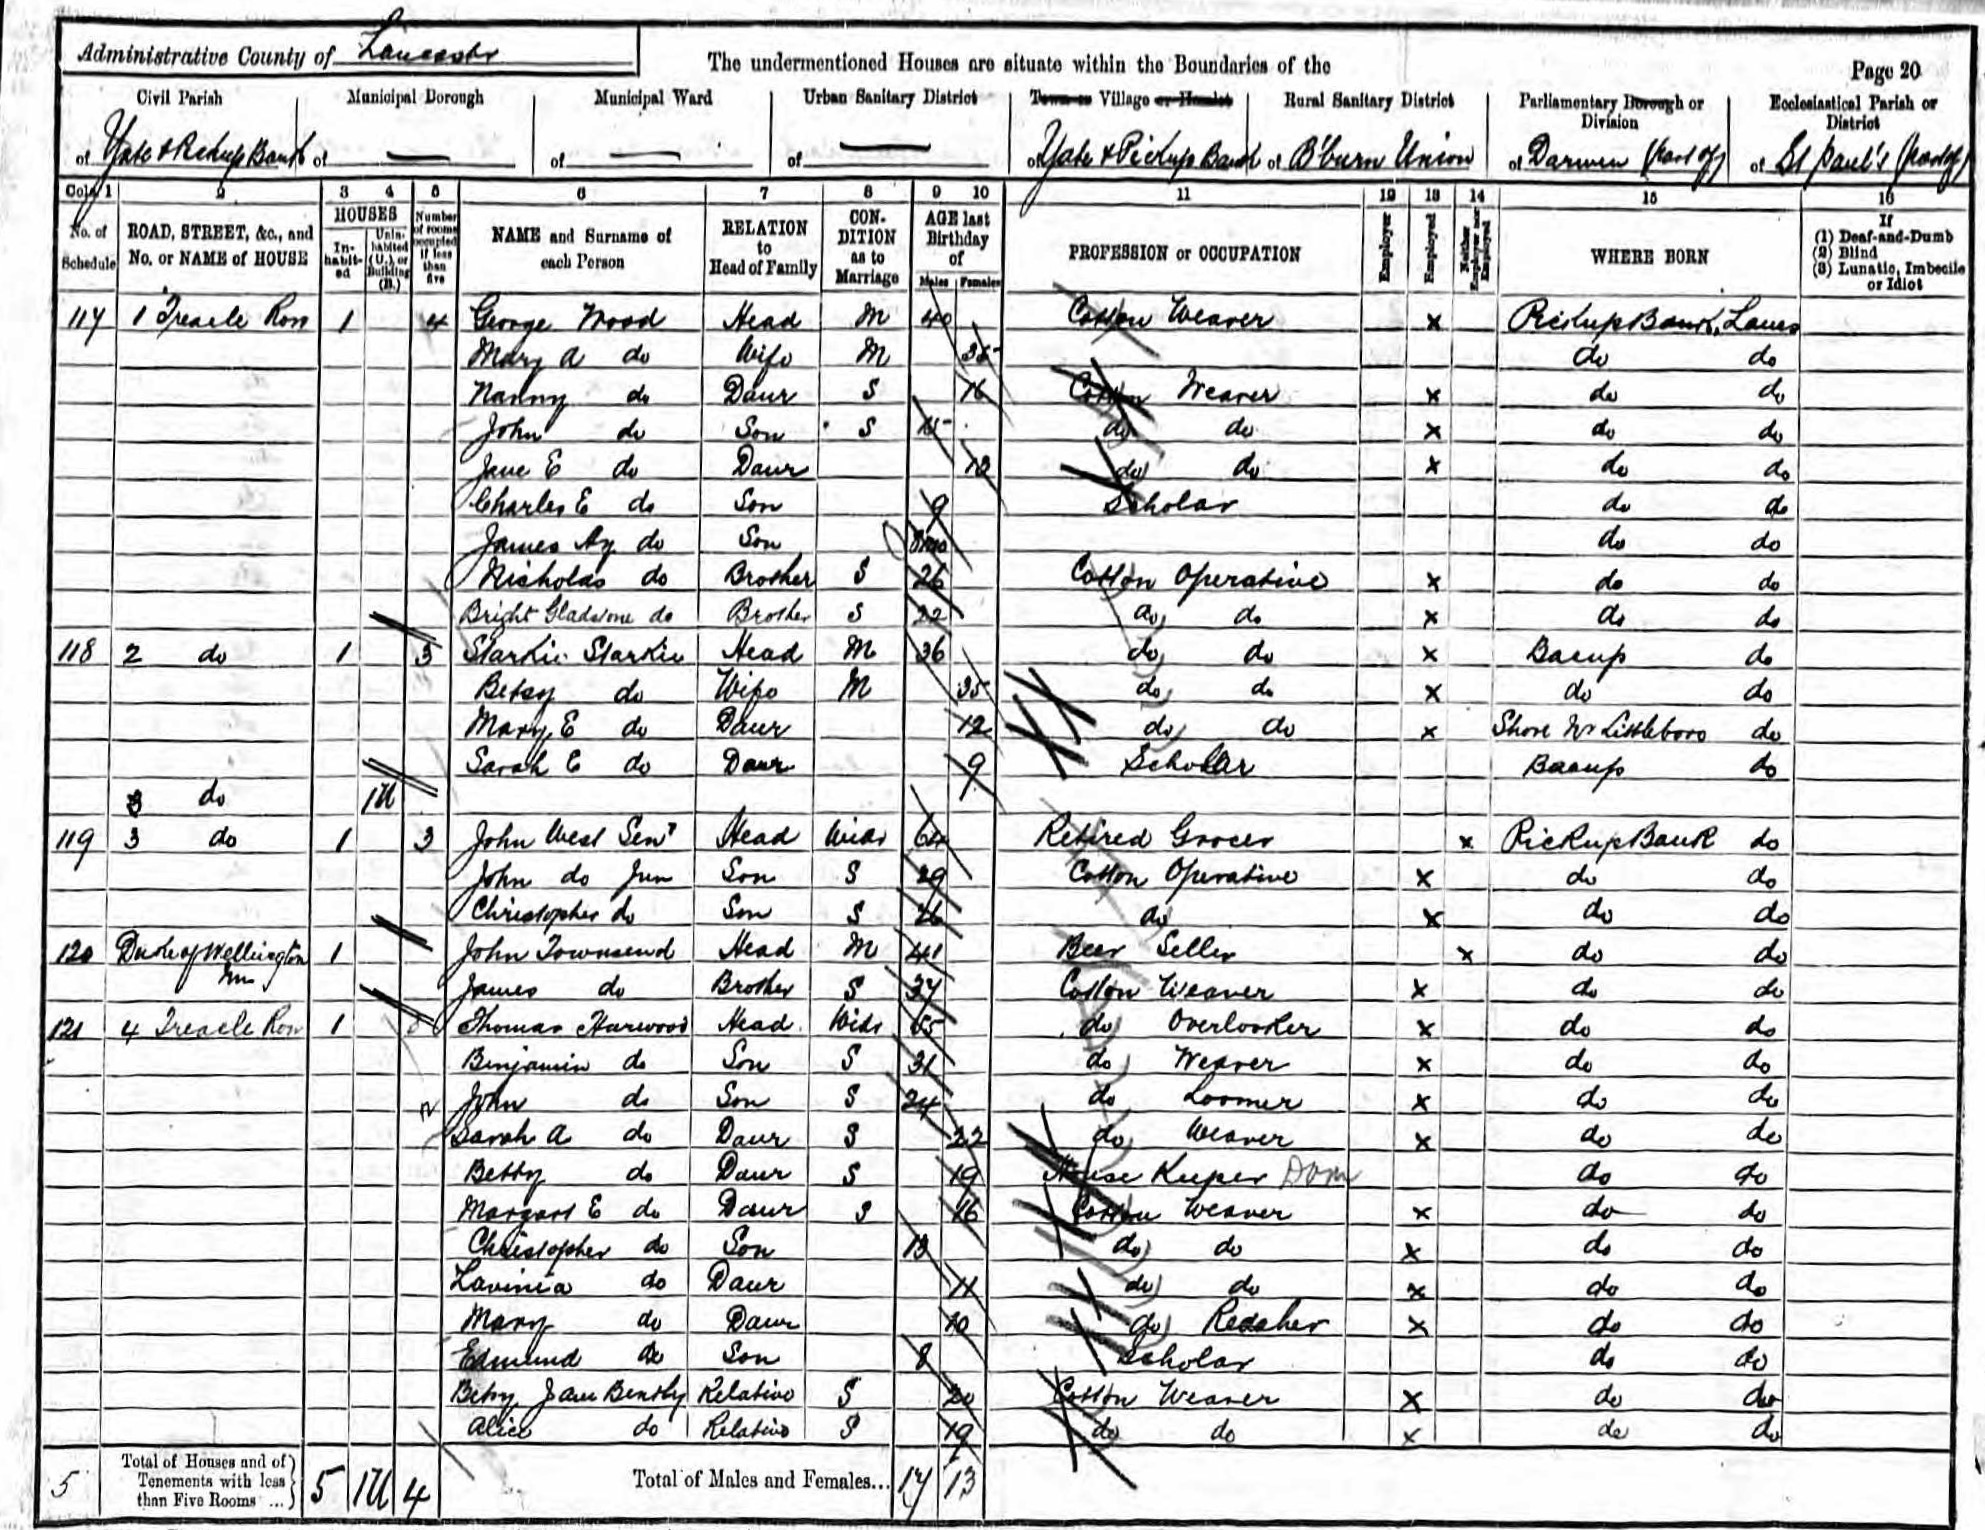 Administrative County of Lancaster
The undermentioned Houses are situate within the Boundaries of the
Page 20
Civil Parish Municipal Borough Municipal Ward Urban Sanitary District Town or Village or Hamlet Rural Sanitary District Parliamentary Borough or Division Ecclesiastical Parish or District
of Yate & Pickup Bank of — of — of — of Yate & Pickup Bank of B'burn Union of Darwen (part of) of St Paul's (part of)
Cols. 1 2 3 4 5 6 7 8 9 10 11 12 13 14 15 16
No. of Schedule ROAD, STREET, &c., and No. or NAME of HOUSE HOUSES Inhabited Uninhabited (U.) or Building (B.) Number of rooms occupied if less than five NAME and Surname of each Person RELATION to Head of Family CONDITION as to Marriage AGE last Birthday of Males Females PROFESSION or OCCUPATION Employer Employed Neither Employer nor Employed WHERE BORN If (1) Deaf-and-Dumb (2) Blind (3) Lunatic, Imbecile or Idiot
117 1 Treacle Row 1 4 George Wood Head M 40 Cotton Weaver x Pickup Bank, Lancs
Mary A do Wife M 35 do do
Nanny do Daur S 16 Cotton Weaver x do do
John do Son S 15 do do x do do
Jane E do Daur 12 do do x do do
Charles E do Son 9 Scholar do do
James Hy do Son 8mo do do
Nicholas do Brother S 26 Cotton Operative x do do
Bright Gladstone do Brother S 22 do do x do do
118 2 do 1 3 Starkie Starkie Head M 36 do do x Bacup do
Betsy do Wife M 35 do do x do do
Mary E do Daur 12 do do x Shore Nr Littleboro do
Sarah E do Daur 9 Scholar Bacup do
3 do 1U
119 3 do 1 3 John West Senr Head Widr 64 Retired Grocer x Pickup Bank do
John do Jun Son S 29 Cotton Operative x do do
Christopher do Son S 26 do x do do
120 Duke of Wellington Inn 1 John Townsend Head M 41 Beer Seller x do do
James do Brother S 37 Cotton Weaver x do do
121 4 Treacle Row 1 Thomas Harwood Head Widr 55 do Overlooker x do do
Benjamin do Son S 31 do Weaver x do do
John do Son S 24 do Loomer x do do
Sarah A do Daur S 22 do Weaver x do do
Betty do Daur S 19 House Keeper Dom do do
Margart E do Daur S 16 Cotton Weaver x do do
Christopher do Son 13 do do x do do
Lavinia do Daur 11 do do x do do
Mary do Daur 10 do x do do
Edmund do Son 8 Scholar do do
Betsy Jane Relative S 20 Cotton Weaver x do do
Alice do Relative S 19 do do x do do
5 Total of Houses and of Tenements with less than Five Rooms ... 5 1U 4 Total of Males and Females... 17 13